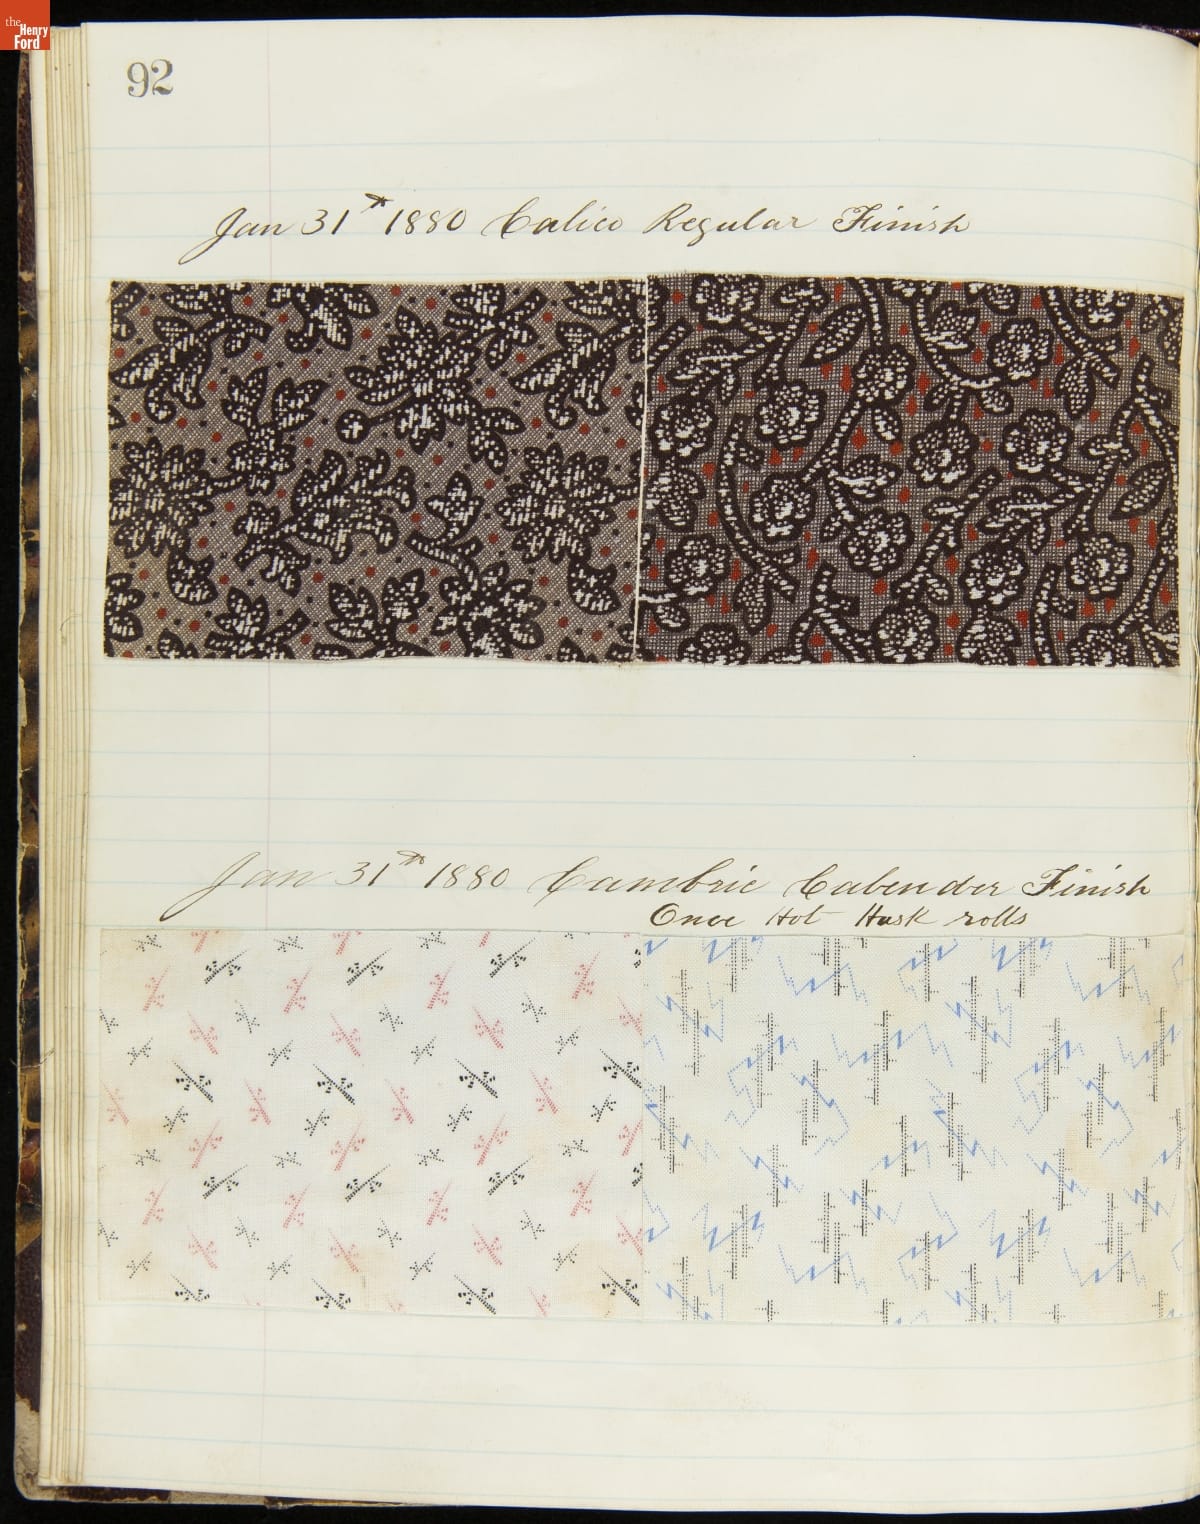 the
Henry
Ford
92
Jan 31st 1880 Calico Regular Finish
Jan 31st 1880 Cambric Calender Finish
Once Hot Husk rolls